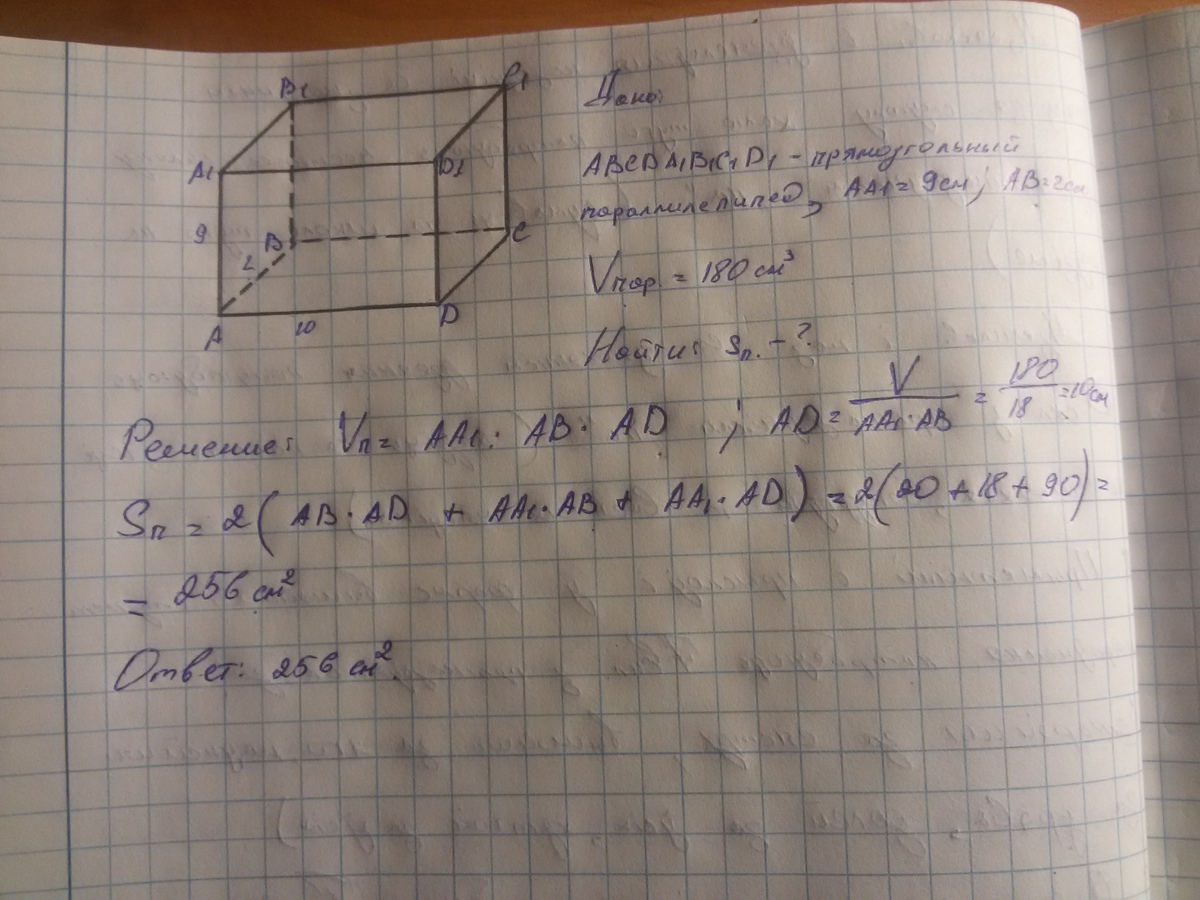 B₁
C₁
A₁
D₁
9
B
C
2
A
10
D
Дано:
ABCDA₁B₁C₁D₁ - прямоугольный
параллилепипед, AA₁ = 9см; AB=2см
Vпар. = 180 см³
Найти: Sп. - ?
Решение: Vп = AA₁ · AB · AD ; AD = V / AA₁·AB = 180 / 18 =10см
Sп = 2 ( AB·AD + AA₁·AB + AA₁·AD) = 2(20+18+90) =
= 256 см²
Ответ: 256 см².